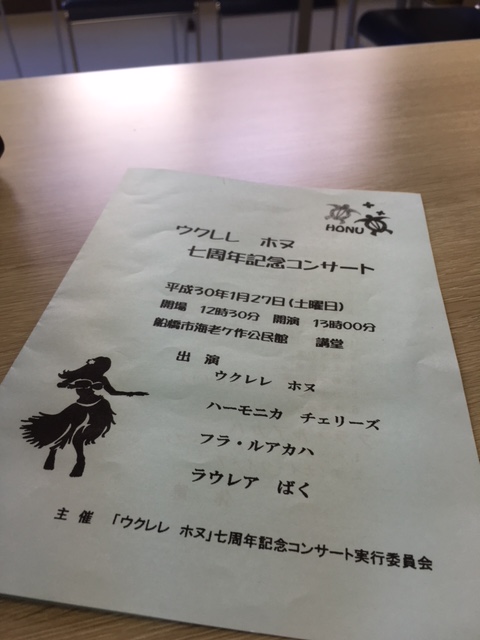 HONU
ウクレレ ホヌ
七周年記念コンサート
平成30年1月27日(土曜日)
開場 12時30分 開演 13時00分
船橋市海老ケ作公民館 講堂
出 演
ウクレレ ホヌ
ハーモニカ チェリーズ
フラ・ルアカハ
ラウレア ばく
主 催 「ウクレレ ホヌ」七周年記念コンサート実行委員会